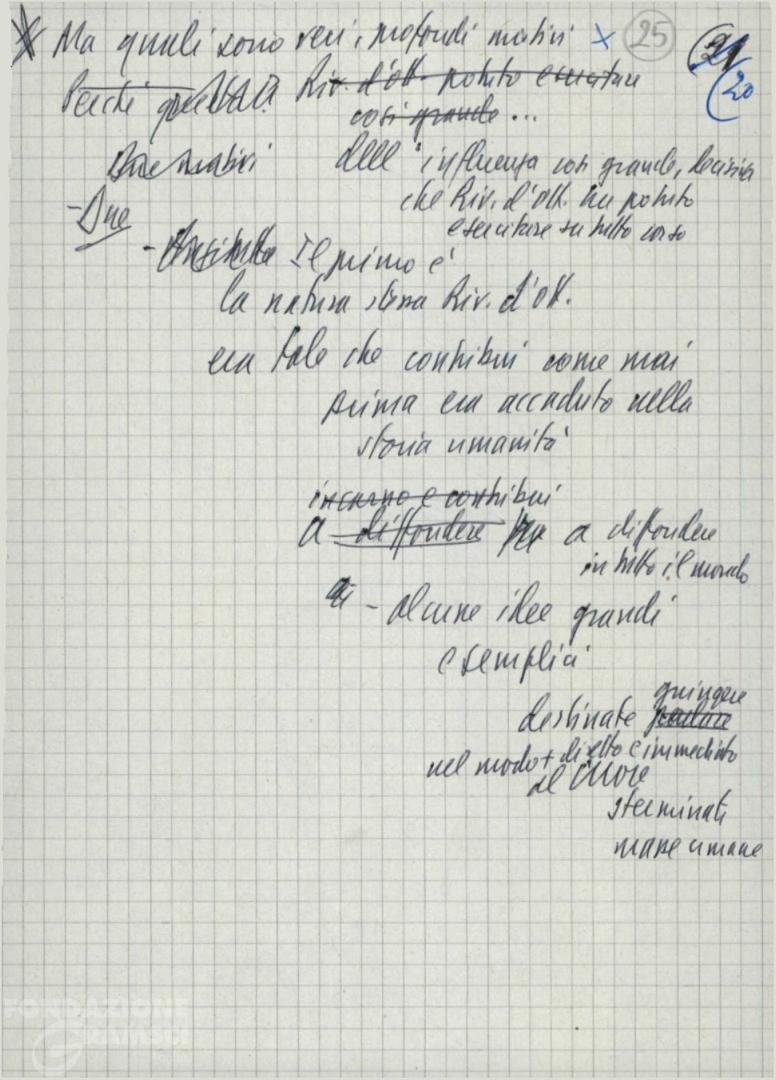 Ma quali sono veri, profondi motivi x 25 21
20
Perché questa Riv. d'ott. potuto esercitare
così grande ...
Due motivi dell'influenza così grande, decisiva
che Riv. d'ott. ha potuto
- Due
esercitare su tutto corso
- Anzitutto Il primo è
la natura stessa Riv. d'ott.
era tale che contribuì come mai
prima era accaduto nella
storia umanità
incarnò e contribuì
a diffondere a diffondere
in tutto il mondo
di - alcune idee grandi
e semplici
giungere
destinate parlare
nel modo + diretto e immediato
al cuore
sterminate
masse umane
FONDAZIONE
GRAMSCI